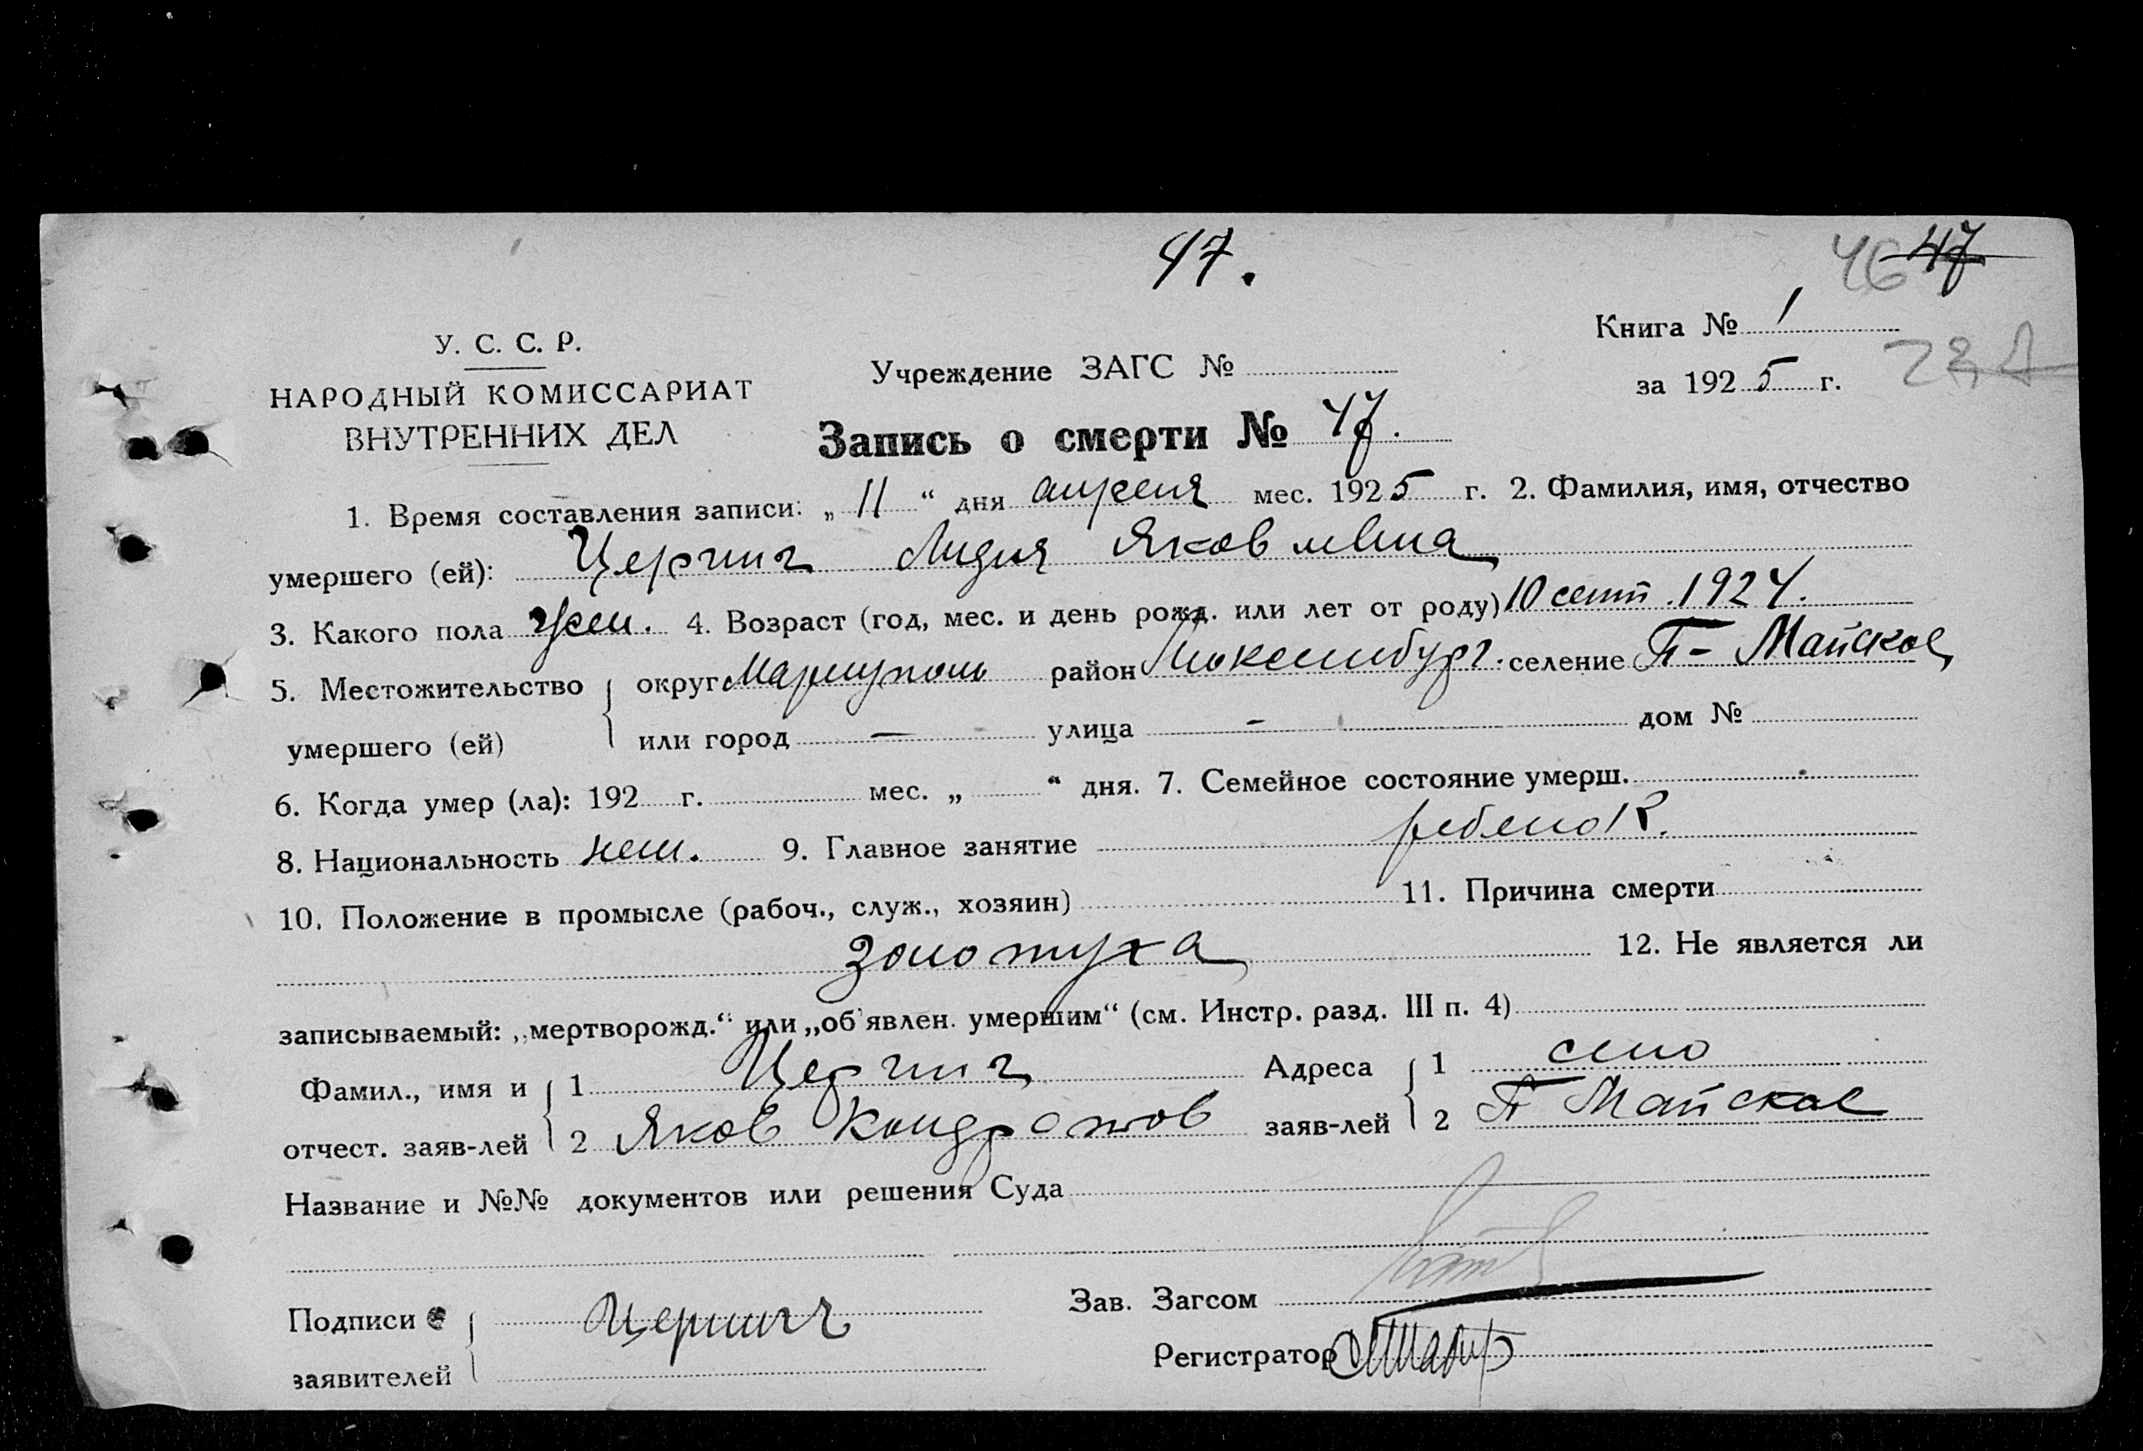 47.
46 47
У. С. С. Р.
Книга № 1
НАРОДНЫЙ КОМИССАРИАТ
ВНУТРЕННИХ ДЕЛ
Учреждение ЗАГС №
за 1925 г.
Запись о смерти № 47.
1. Время составления записи: „11“ дня апреля мес. 1925 г. 2. Фамилия, имя, отчество
умершего (ей): Цергинг Лидия Яковлевна
3. Какого пола жен. 4. Возраст (год, мес. и день рожд. или лет от роду) 10 сент. 1924.
5. Местожительство округ Мариуполь район Люксембург. селение П-Майское
умершего (ей) или город — улица - дом №
6. Когда умер (ла): 192 г. мес. „ “ дня. 7. Семейное состояние умерш.
8. Национальность нем. 9. Главное занятие ребенок.
10. Положение в промысле (рабоч., служ., хозяин) 11. Причина смерти
золотуха 12. Не является ли
записываемый: „мертворожд.“ или „об'явлен. умершим“ (см. Инстр. разд. III п. 4)
Фамил., имя и 1 Цергинг Адреса 1 село
отчест. заяв-лей 2 Яков Кондратов заяв-лей 2 П Майское
Название и №№ документов или решения Суда
Подписи Цергинг Зав. Загсом
заявителей Регистратор